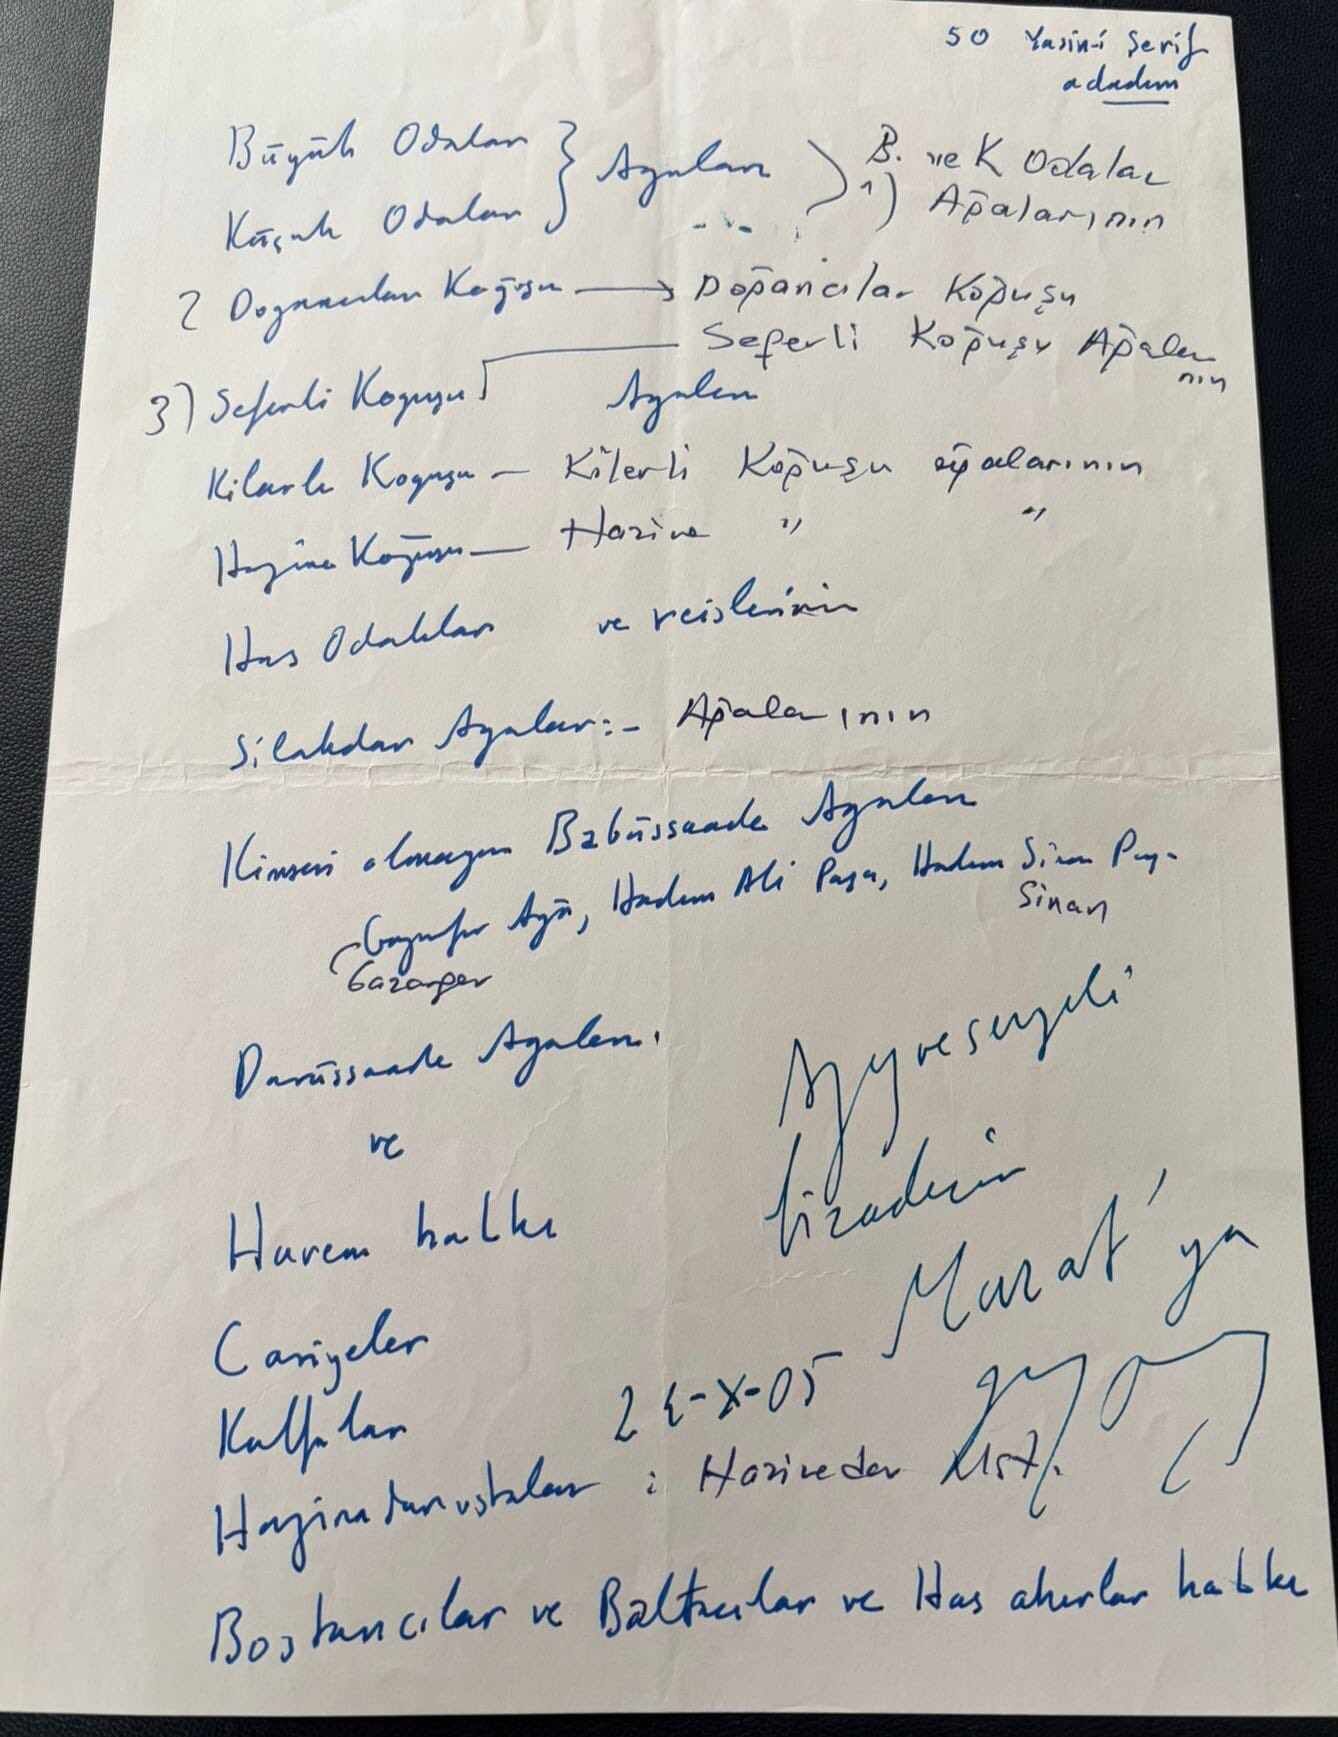 50 Yasin-i Şerif
adadım
Büyük Odaları } Ağaları ) B. ve K Odalar
Küçük Odaları 1) Ağalarının
2 Doğancılar Koğuşu → Doğancılar Koğuşu
Seferli Koğuşu Ağaları
nın
3) Seferli Koğuşu Ağaları
Kilerli Koğuşu — Kilerli Koğuşu ağalarının
Hazine Koğuşu — Hazine " "
Has Odalılar ve reislerinin
Silahdar Ağaları:- Ağalarının
Kimsesi olmayan Babüssaade Ağaları
Gazanfer Ağa, Hadım Ali Paşa, Hadım Sinan Paşa
Sinan
Gazanfer
Darüssaade Ağaları.
ve
Harem halkı
Cariyeler
Kalfalar
Hazinedar ustalar : Hazinedar Ust.
Bostancılar ve Baltacılar ve Has ahırlar halkı
Murat'ya
-X-05